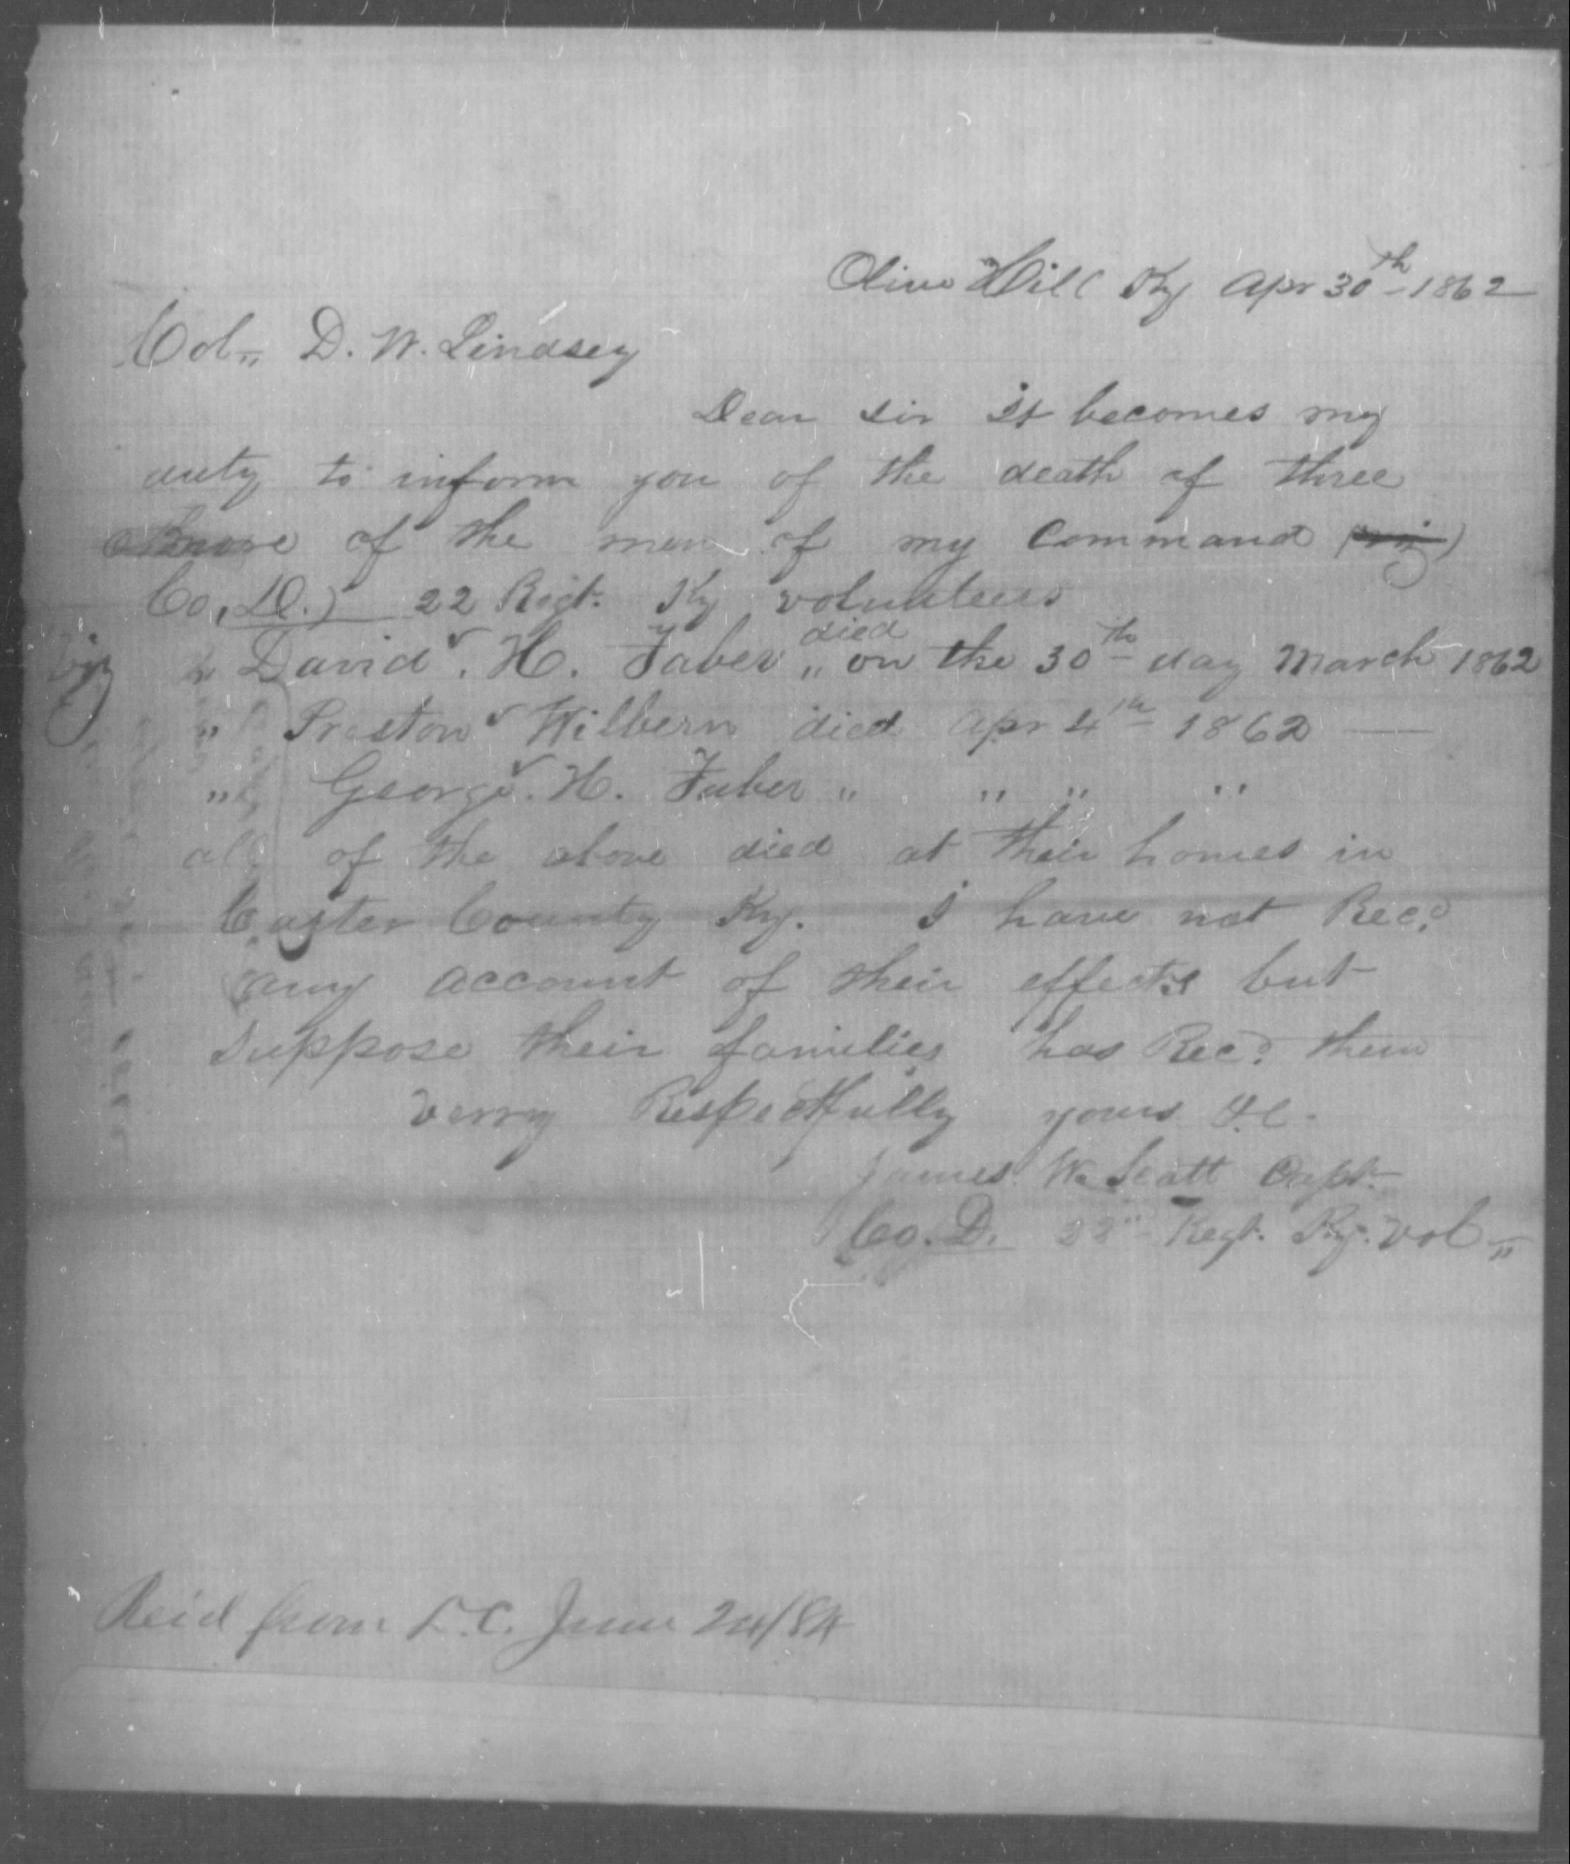 Olive Hill Ky Apr 30th 1862
Col„ D. W. Lindsey
Dear sir it becomes my
duty to inform you of the death of three
of the men of my command
Co, D.) 22 Regt. Ky volunteers
viz David. H. Faber „ died on the 30th day March 1862
„ Preston Wilbern died Apr 4th 1862 —
„ George. H. Faber „ „ „ „
all of the above died at their homes in
Carter County Ky. I have not Recd
any account of their effects but
suppose their families has Recd them
verry Respectfully yours &c.
James W. Scott Capt.
Co. D. 22nd Regt. Ky. Vol„
Recd from L.C. June 24/84